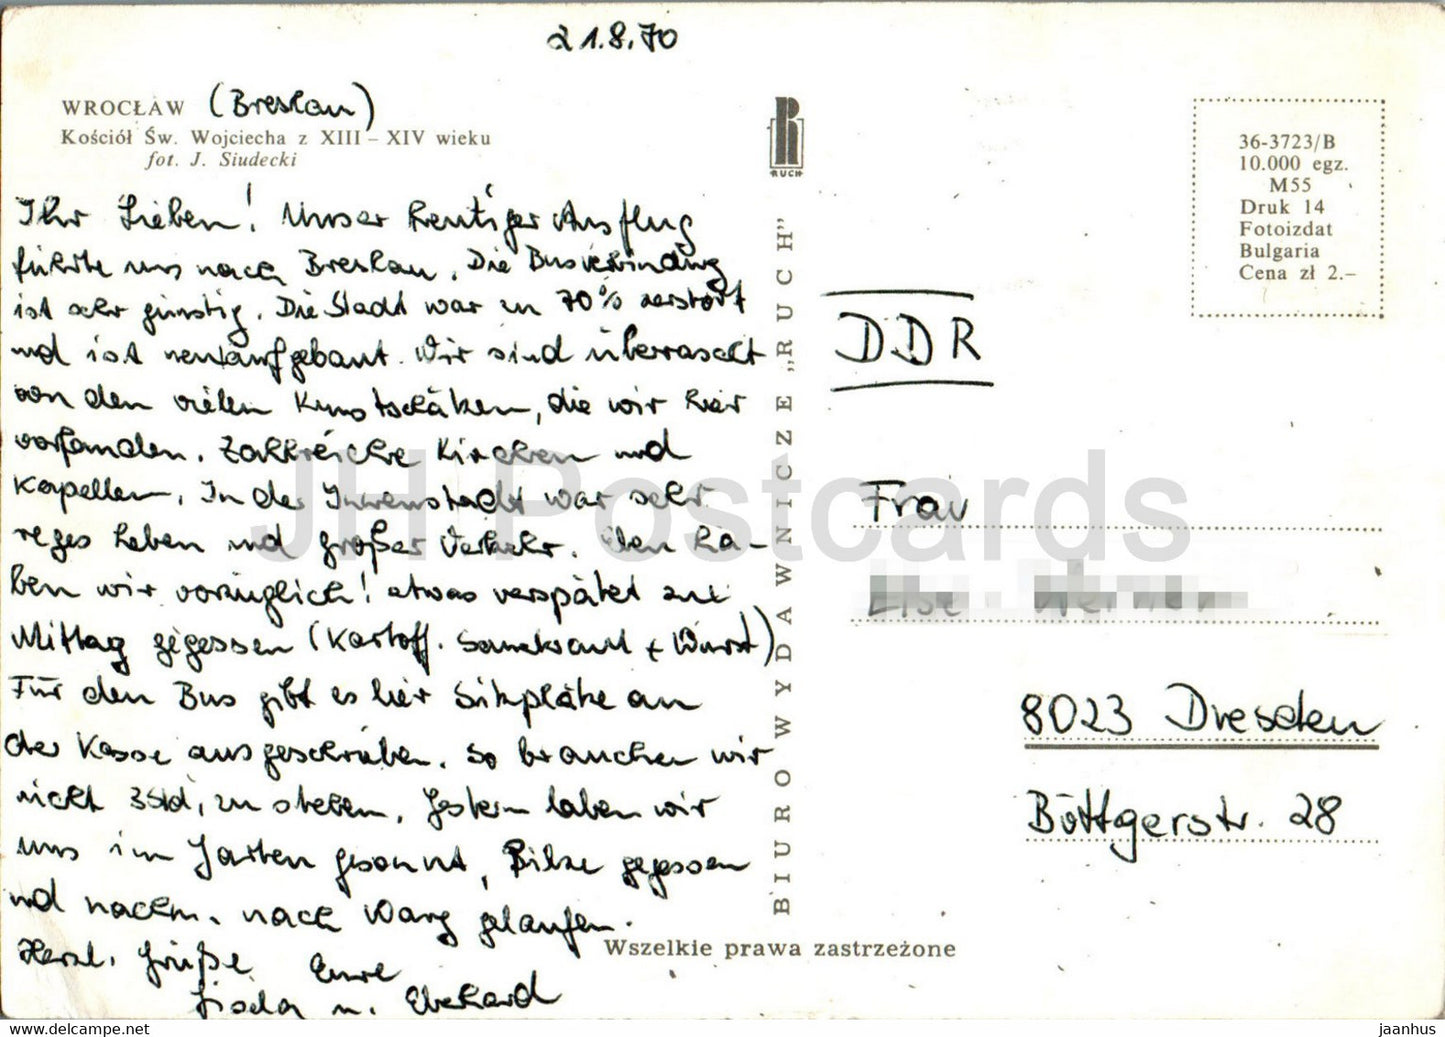 21.8.70
WROCŁAW (Breslau)
Kościół Św. Wojciecha z XIII – XIV wieku
fot. J. Siudecki
Ihr Lieben! Unser heutiger Ausflug
führte uns nach Breslau. Die Busverbindung
ist sehr günstig. Die Stadt war zu 70% zerstört
und ist neu aufgebaut. Wir sind überrascht
von den vielen Kunstschätzen, die wir hier
vorfanden. Zahlreiche Kirchen und
Kapellen. In der Innenstadt war sehr
reges Leben und großer Verkehr. Eben ha-
ben wir vorzüglich! etwas verspätet zu
Mittag gegessen (Kartoff. Sauerkraut + Wurst)
Für den Bus gibt es hier Sitzplätze an
der Kasse ausgeschrieben. So brauchen wir
nicht 3 Std. zu stehen. Gestern haben wir
uns im Garten gesonnt, Pilze gegessen
und nachm. nach Warg gelaufen.
Herzl. Grüße Eure
Gisela u. Eberhard
RUCH
BIURO WYDAWNICZE „RUCH”
Wszelkie prawa zastrzeżone
36-3723/B
10.000 egz.
M55
Druk 14
Fotoizdat
Bulgaria
Cena zł 2.–
DDR
Frau
Else Werner
8023 Dresden
Böttgerstr. 28
JH Postcards
https://www.ebay.com/str/jhpostcardsstore
jaanhus